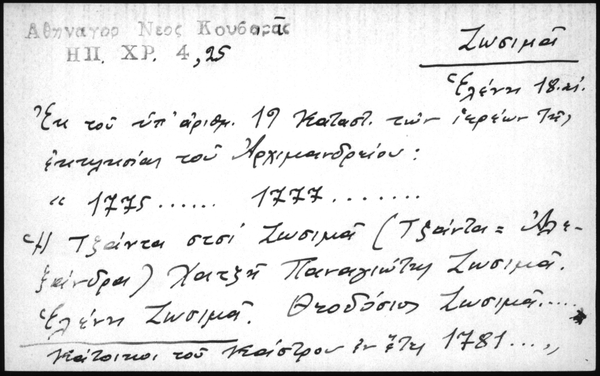 Αθηναγορ Νεος Κουβαρᾶς
ΗΠ. ΧΡ. 4, 25
Ζωσιμᾶ
Ἑλένη 18. αἰ.
Ἐκ τοῦ ὑπ' ἀριθμ. 19 Καταστ. τῶν ἱερέων τῆς
ἐκκλησίας τοῦ Ἀρχιμανδρείου:
" 1775...... 1777.......
Ἡ Τζάντα στσί Ζωσιμᾶ (Τζάντα = Ἀλε-
ξάνδρα) Χατζῆ Παναγιώτης Ζωσιμᾶ.
Ἑλένη Ζωσιμᾶ. Θεοδόσιος Ζωσιμᾶ.....
κάτοικοι τοῦ Κάστρου ἐν ἔτει 1781...,,